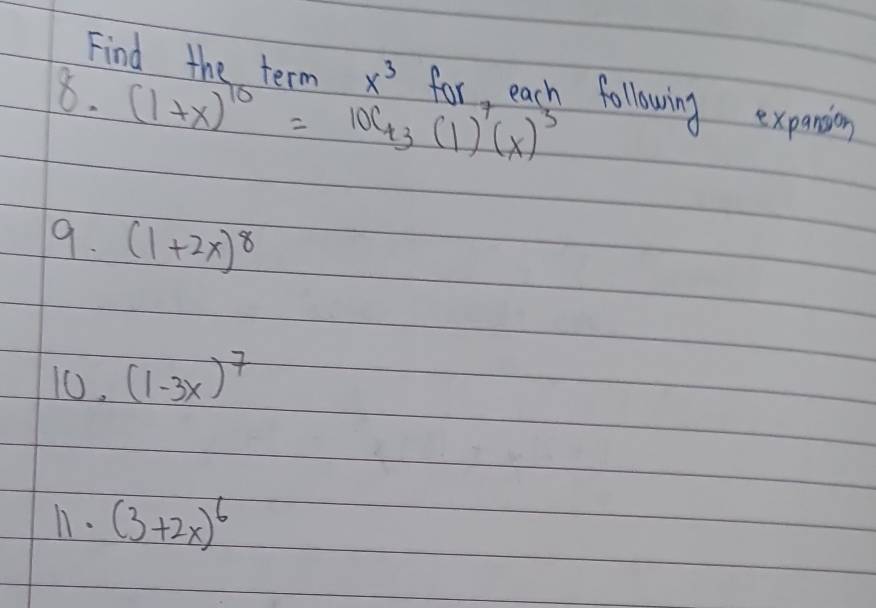 Find the term x³ for each following expansion
8. (1+x)¹⁰ = 10C₃ (1)⁷(x)³
9. (1+2x)⁸
10. (1-3x)⁷
11. (3+2x)⁶